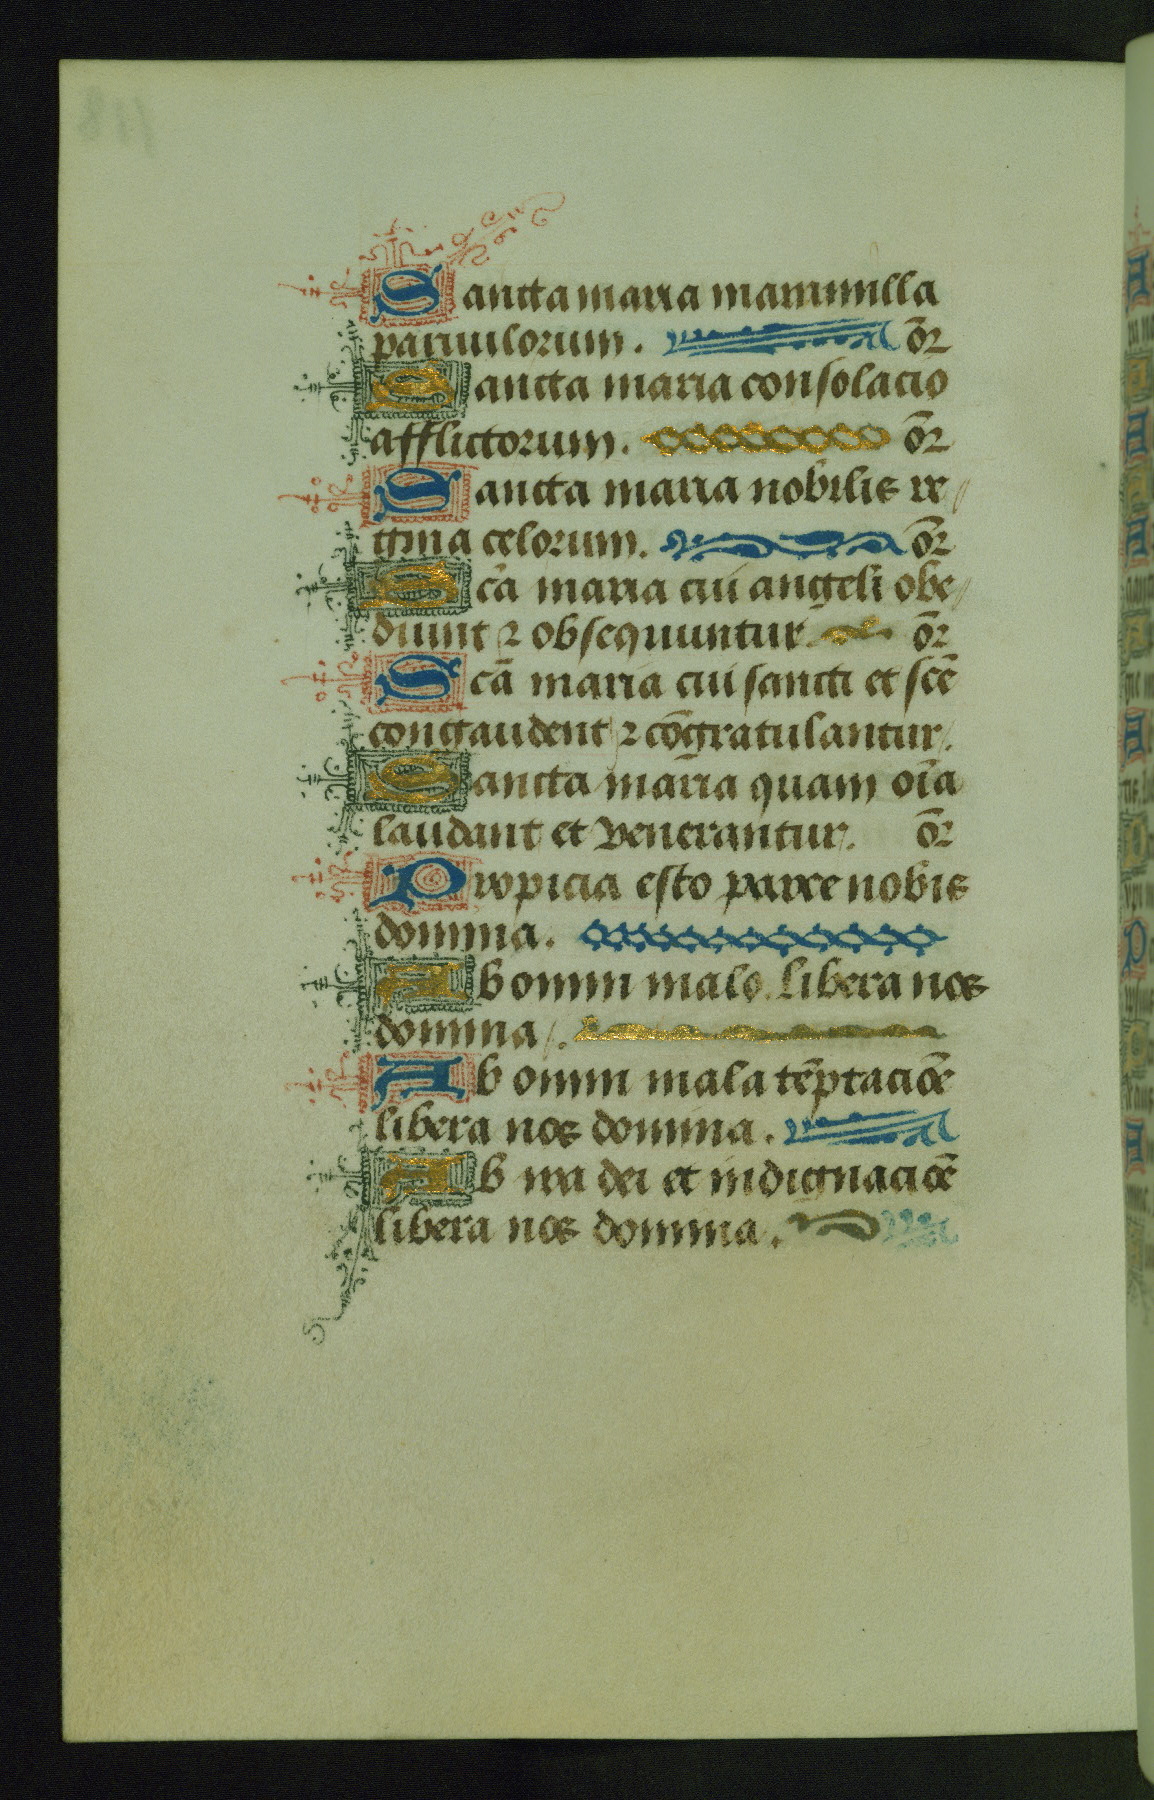 Sancta maria mammilla
paruulorum. or̄
Sancta maria consolacio
afflictorum. or̄
Sancta maria nobilis re
gina celorum. or̄
Sc̄a maria cui angeli obe
diunt ⁊ obsequuntur. or̄
Sc̄a maria cui sancti et sc̄e
congaudent ⁊ cōgratulantur.
Sancta maria quam oīa
laudant et venerantur. or̄
Propicia esto parce nobis
domina.
Ab omni malo libera nos
domina.
Ab omni mala tēptaciōe
libera nos domina.
Ab ira dei et indignaciōe
libera nos domina.